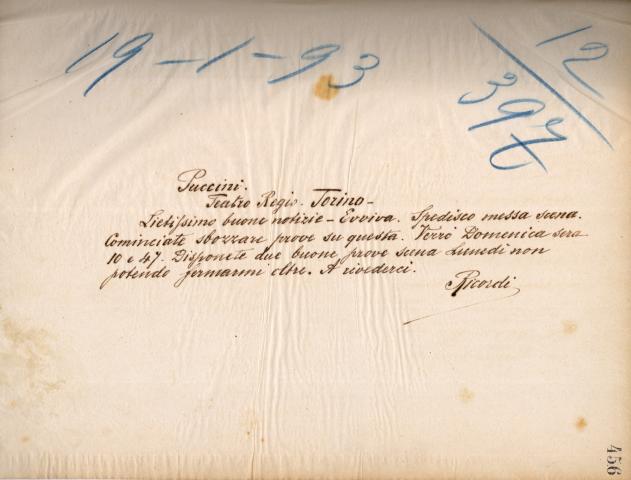 19-1-93
12
397
Puccini.
Teatro Regio. Torino -
Lietissimo buone notizie - Evviva. Spedisco messa scena.
Cominciate sbozzare prove su questa. Verrò Domenica sera
10 e 47. Disponete due buone prove scena Lunedì non
potendo fermarmi oltre. A rivederci.
Ricordi
456